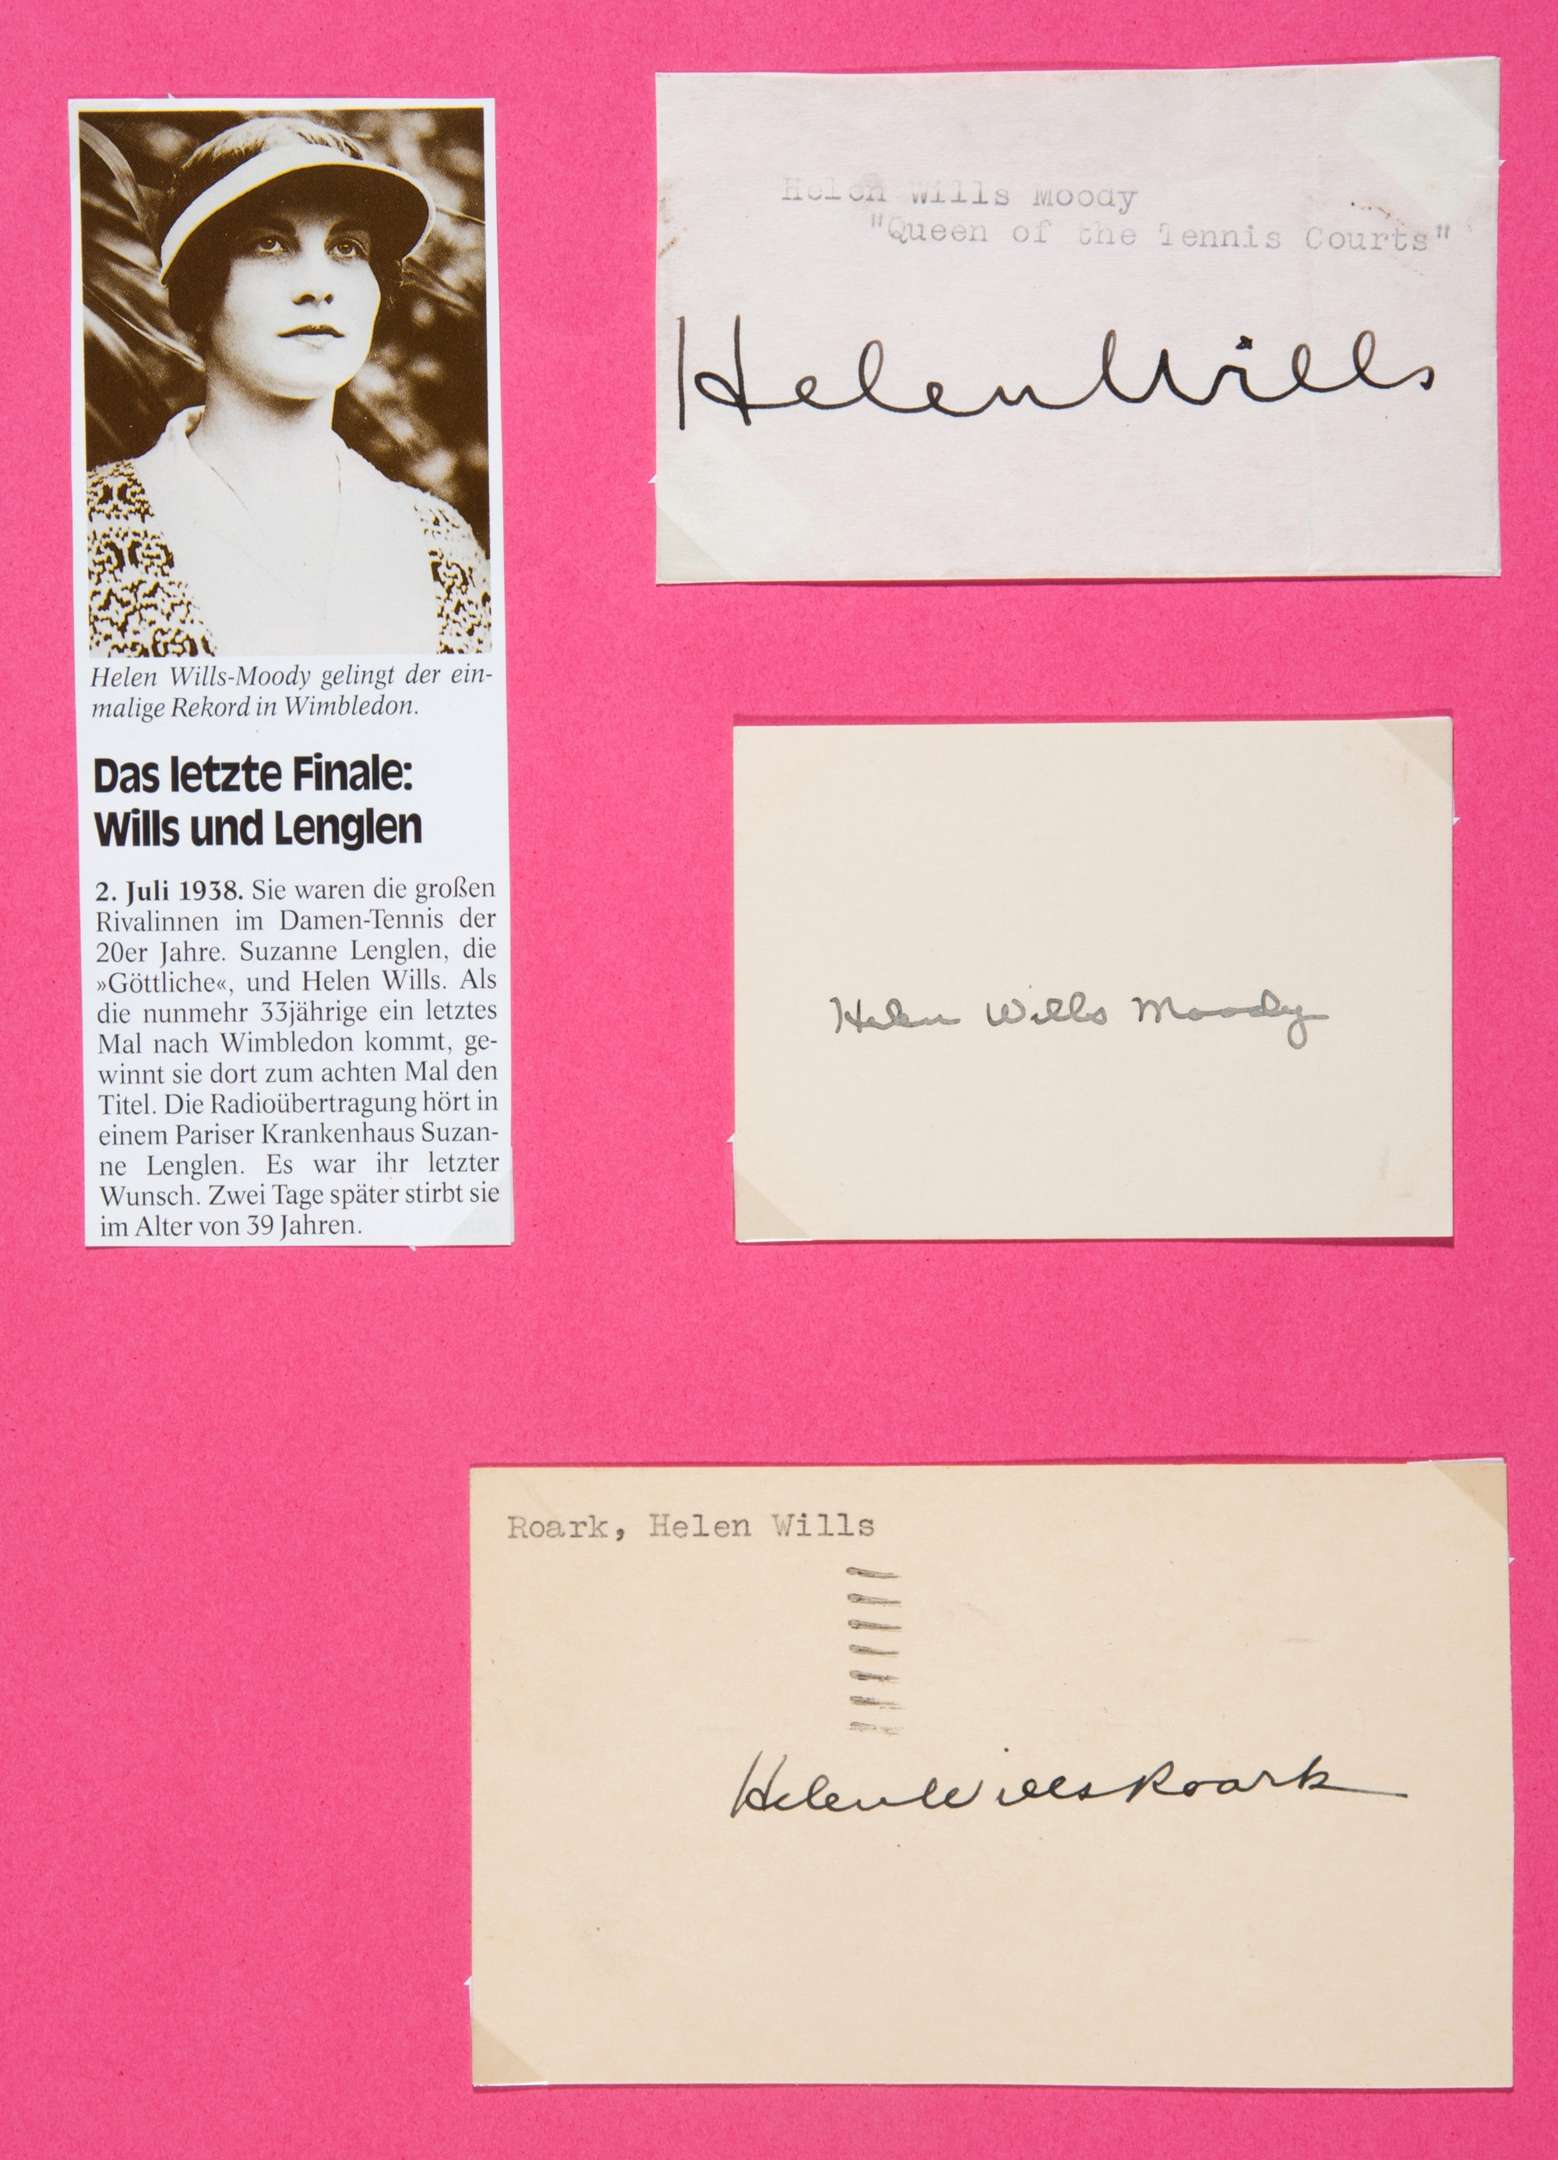 Helen Wills-Moody gelingt der ein-
malige Rekord in Wimbledon.
Das letzte Finale:
Wills und Lenglen
2. Juli 1938. Sie waren die großen
Rivalinnen im Damen-Tennis der
20er Jahre. Suzanne Lenglen, die
»Göttliche«, und Helen Wills. Als
die nunmehr 33jährige ein letztes
Mal nach Wimbledon kommt, ge-
winnt sie dort zum achten Mal den
Titel. Die Radioübertragung hört in
einem Pariser Krankenhaus Suzan-
ne Lenglen. Es war ihr letzter
Wunsch. Zwei Tage später stirbt sie
im Alter von 39 Jahren.
Helen Wills Moody
"Queen of the Tennis Courts"
Helen Wills
Helen Wills Moody
Roark, Helen Wills
Helen Wills Roark